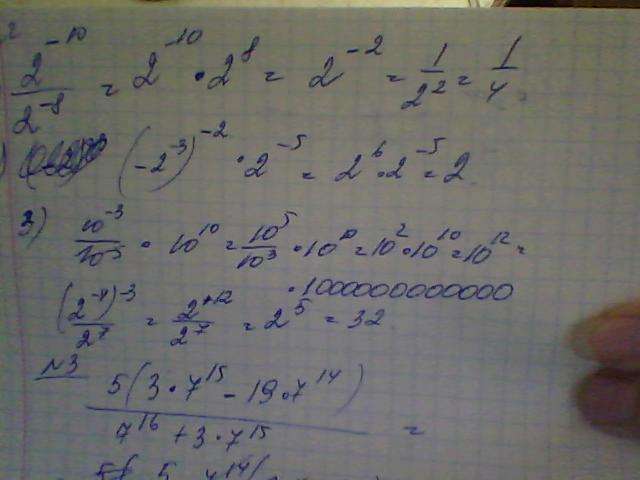 2^-10 / 2^-8 = 2^-10 · 2^8 = 2^-2 = 1/2^2 = 1/4
(-2^-3)^-2 · 2^-5 = 2^6 · 2^-5 = 2
3) 10^-3 / 10^-5 · 10^10 = 10^5 / 10^3 · 10^10 = 10^2 · 10^10 = 10^12 =
1000000000000
(2^-4)^-3 / 2^7 = 2^+12 / 2^7 = 2^5 = 32
№3
5(3·7^15 - 19·7^14) / 7^16 + 3·7^15 =